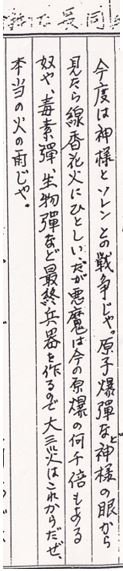 今度は神様とソレンとの戦争じゃ。原子爆彈な神様の眼から
見たら線香花火にひとしい、だが悪魔は今の原爆の何千倍もある
奴や、毒素彈、生物彈など最終兵器を作るので大三災はこれからだぜ、
本当の火の雨じゃ。